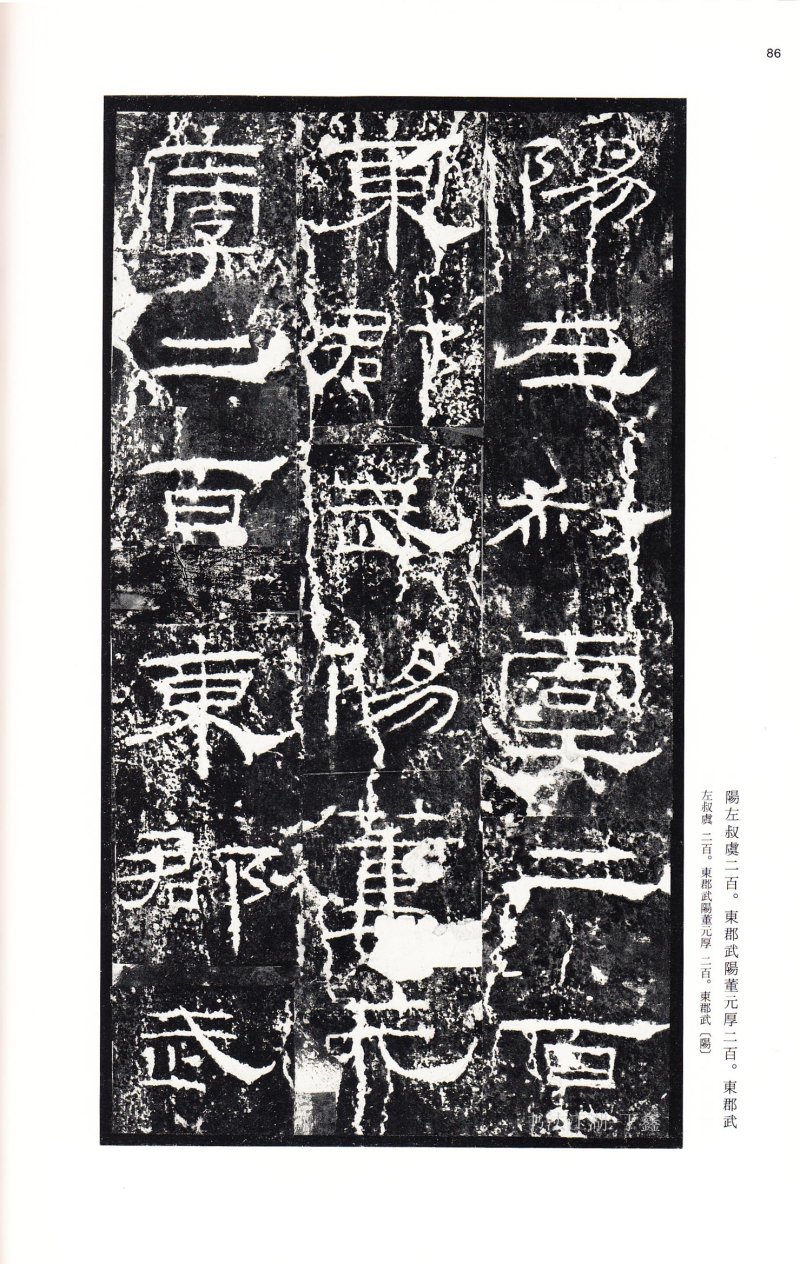 86
陽左叔虞二百
東郡武陽董元
厚二百東郡武
陽左叔虞二百。東郡武陽董元厚二百。東郡武
左叔虞 二百。東郡武陽董元厚 二百。東郡武〔陽〕